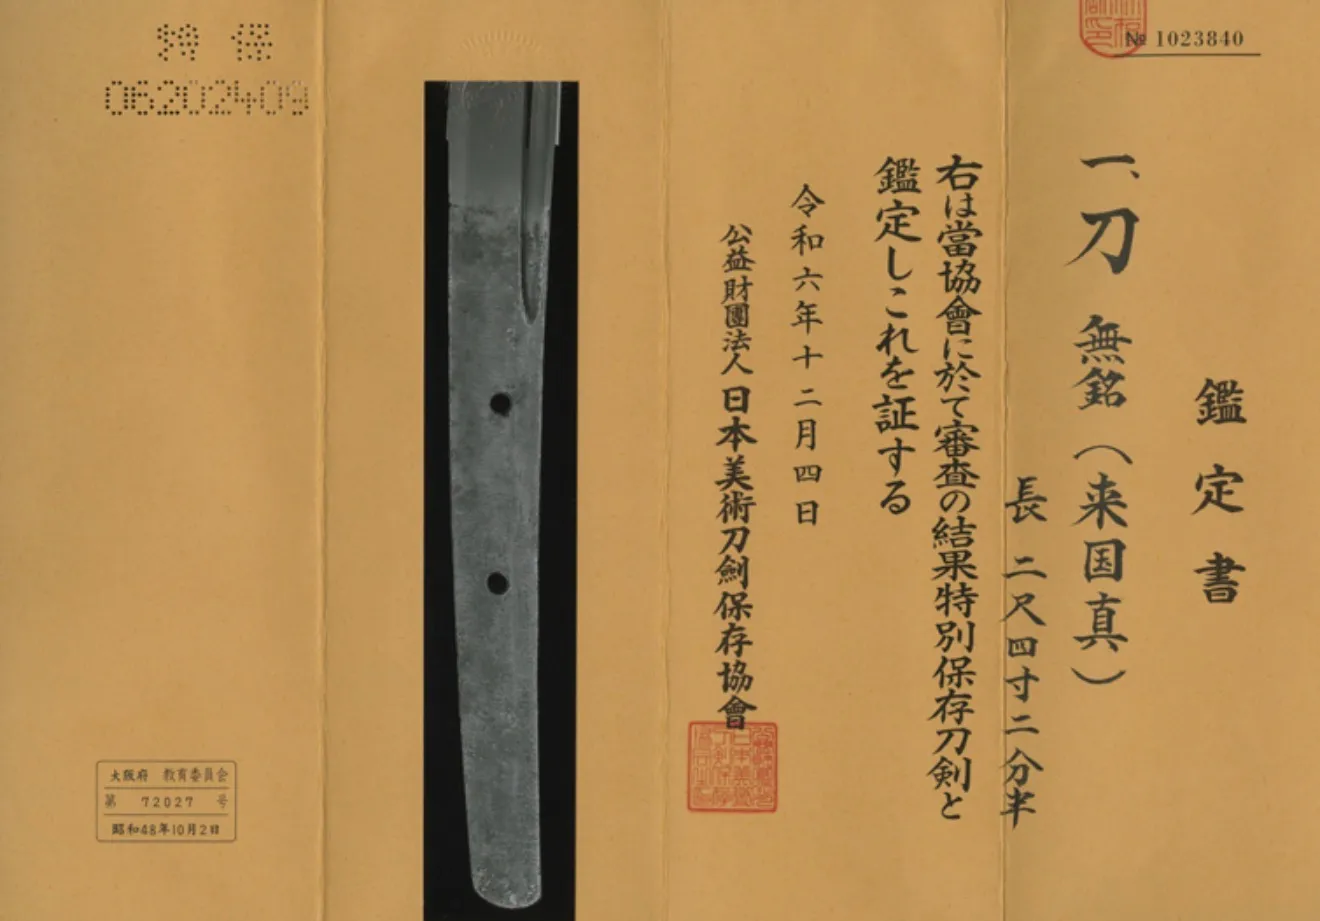 № 1023840
鑑定書
一、刀 無銘（来国真）
長 二尺四寸二分半
右は當協會に於て審査の結果特別保存刀剣と
鑑定しこれを証する
令和六年十二月四日
公益財團法人 日本美術刀劍保存協會
特保
06202409
大阪府 教育委員会
第 72027 号
昭和48年10月2日